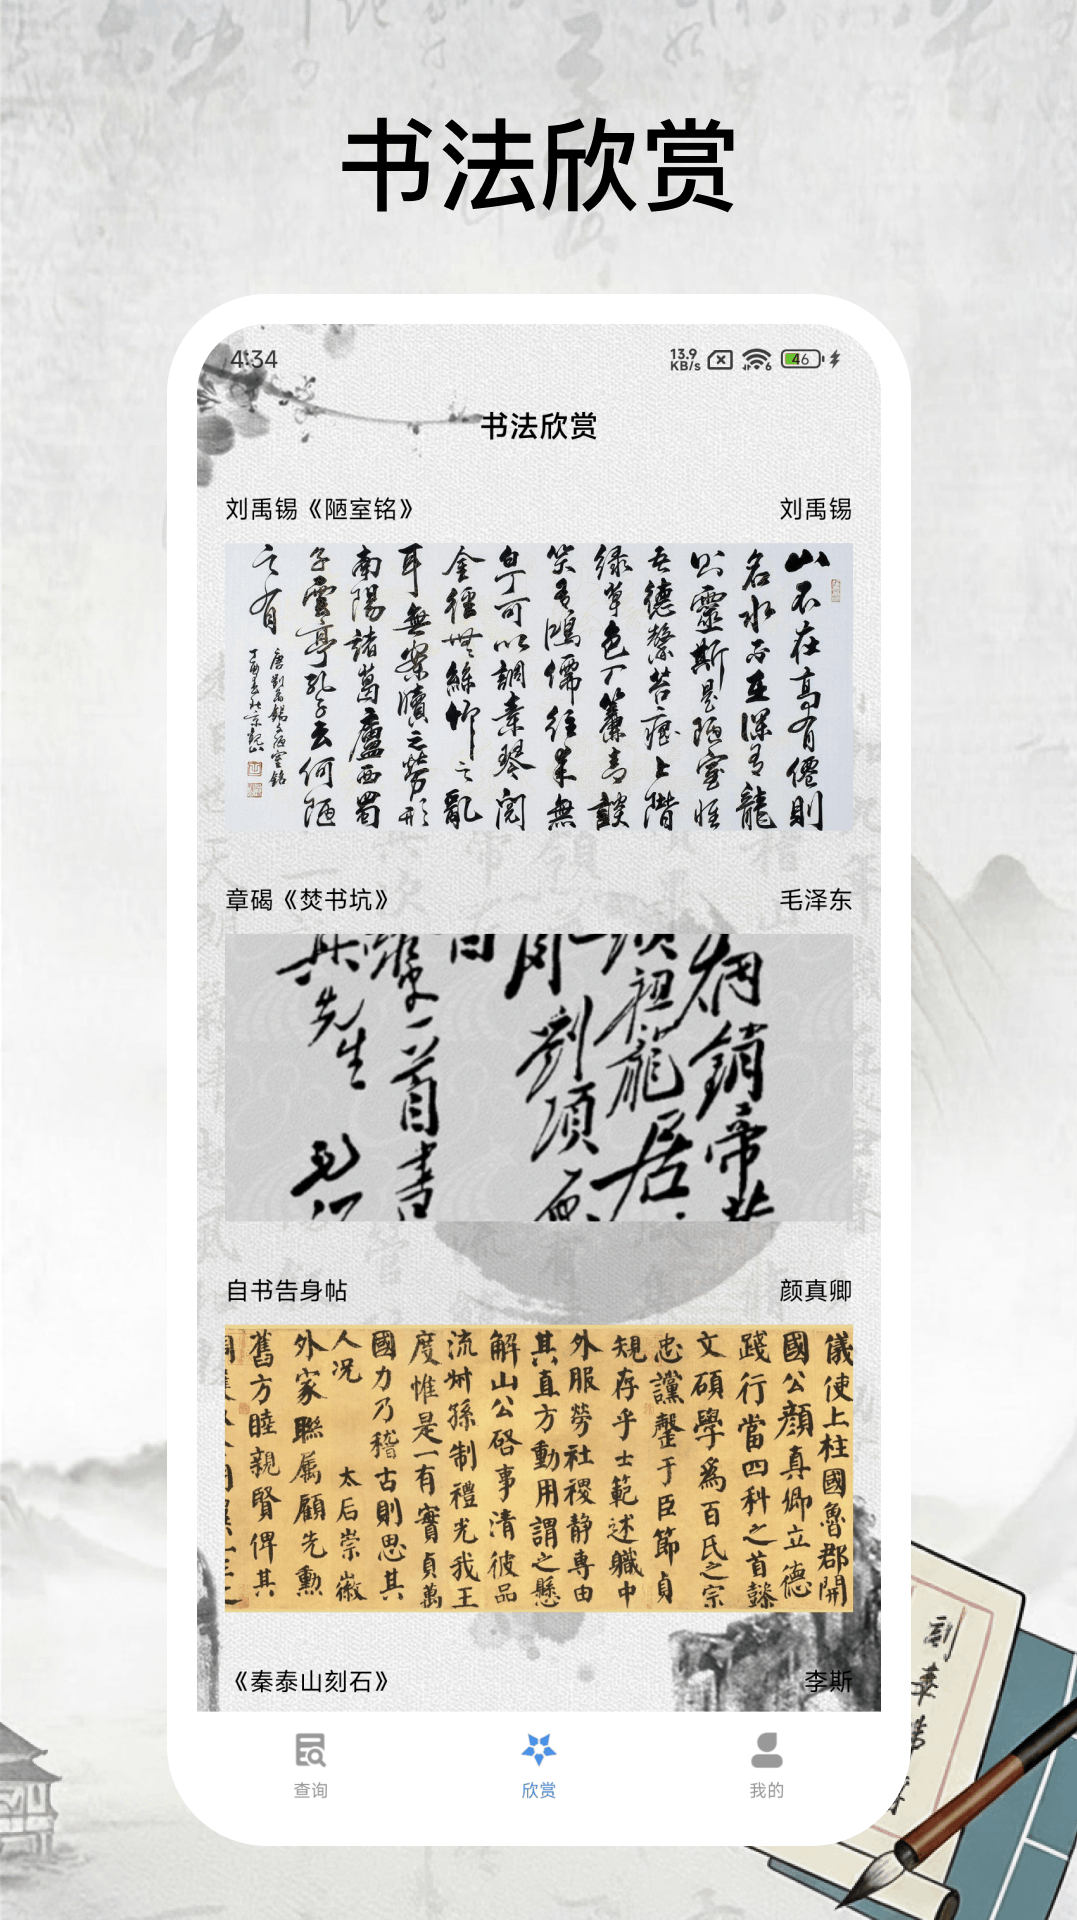 书法欣赏
4:34
13.9
KB/s
6
46
书法欣赏
刘禹锡《陋室铭》
刘禹锡
山不在高有僊則
名水不在深有龍
則靈斯是陋室惟
吾德馨苔痕上階
綠草色入簾青談
笑有鴻儒往來無
白丁可以調素琴閱
金經無絲竹之亂
耳無案牘之勞形
南陽諸葛廬西蜀
子雲亭孔子云何陋
之有
唐劉禹錫文陋室銘
章碣《焚书坑》
毛泽东
烟銷帝業
祖龍居
劉項原
一首書
先生
自书告身帖
颜真卿
儀使上柱國魯郡開
國公顏真卿立德
踐行當四科之首懿
文碩學為百氏之宗
忠讜罄于臣節貞
規存乎士範述職中
外服勞社稷靜專由
其直方動用謂之懸
解山公啓事清彼品
流叔孫制禮光我王
度惟是一有實貞萬
國力乃稽古則思其
人況 太后崇徽
外家聯屬顧先勳
舊方睦親賢俾其
《秦泰山刻石》
李斯
查询
欣赏
我的